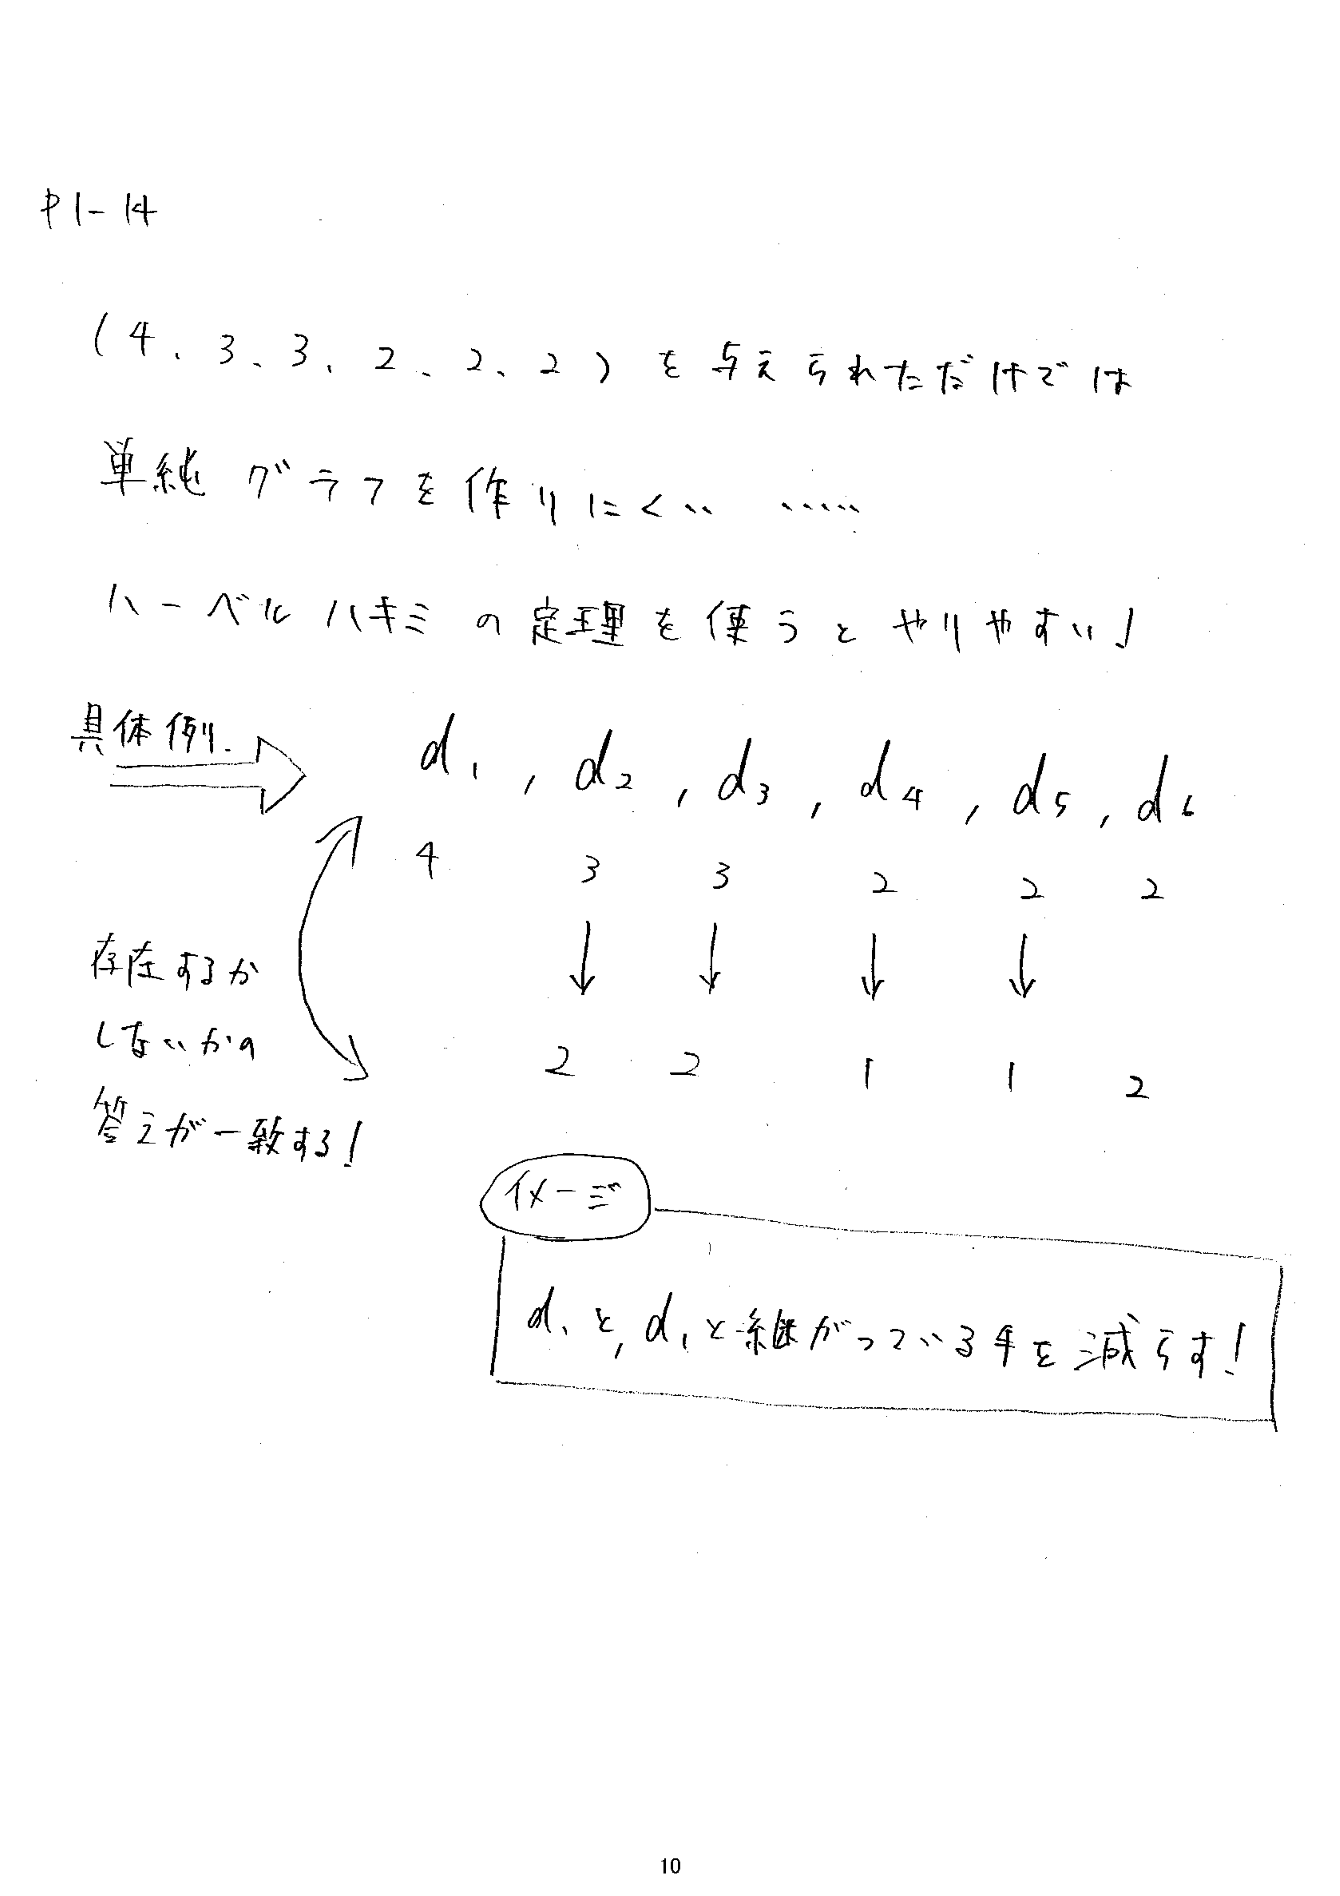 P1-14
(4、3、3、2、2、2)を与えられただけでは
単純グラフを作りにくい ‥‥‥
ハーベルハキミの定理を使うとやりやすい!
具体例.
d1, d2, d3, d4, d5, d6
4 3 3 2 2 2
↓ ↓ ↓ ↓
存在するか
しないかの
答えが一致する!
2 2 1 1 2
イメージ
d1と, d1と継がっている手を減らす!
10